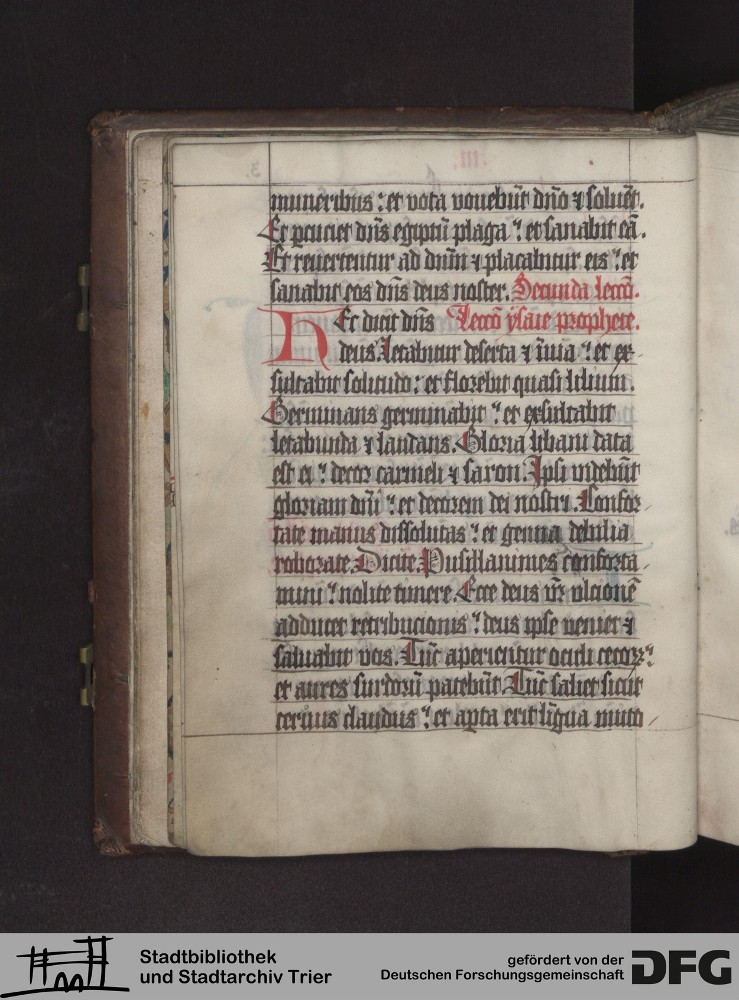 muneribus : et vota vouebūt dño ⁊ soluēt.
Et ꝑcuciet dñs egiptū plaga : et sanabit eā.
Et reuertentur ad dnm̄ ⁊ placabitur eis : et
sanabit eos dñs deus noster. Secunda leccō.
Hec dicit dñs Leccō ysaie prophete.
deus. Letabitur deserta ⁊ īuia : et ex
sultabit solitudo : et florebit quasi lilium.
Germinans germinabit : et exsultabit
letabunda ⁊ laudans. Gloria libani data
est ei : decor carmeli ⁊ saron. Ipsi videbūt
gloriam dñi : et decorem dei nostri. Confor-
tate manus dissolutas : et genua debilia
roborate. Dicite. Pusillanimes conforta-
mini : nolite timere. Ecce deus vr̄ vlcionē
adducet retribucionis : deus ipse veniet ⁊
saluabit vos. Tūc aperientur oculi cecoꝝ :
et aures surdorū patebūt. Tūc saliet sicut
ceruus claudus : et apta erit līgua muto-
Stadtbibliothek
und Stadtarchiv Trier
gefördert von der
Deutschen Forschungsgemeinschaft
DFG